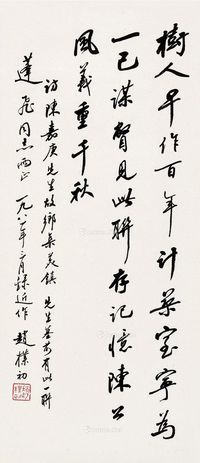 樹人早作百年計築室寧為
一己謀瞥見此聯存記憶陳公
風義重千秋
訪陳嘉庚先生故鄉集美鎮 先生有一聯
飛同志正 一九八一年月錄近作 趙樸初